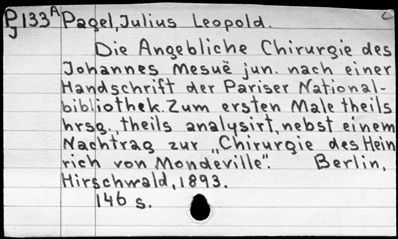 PJ133A Pagel, Julius Leopold.
Die Angebliche Chirurgie des
Johannes Mesuë jun. nach einer
Handschrift der Pariser National-
bibliothek. Zum ersten Male theils
hrsg., theils analysirt, nebst einem
Nachtrag zur „Chirurgie des Hein
rich von Mondeville". Berlin,
Hirschwald, 1893.
146 s.